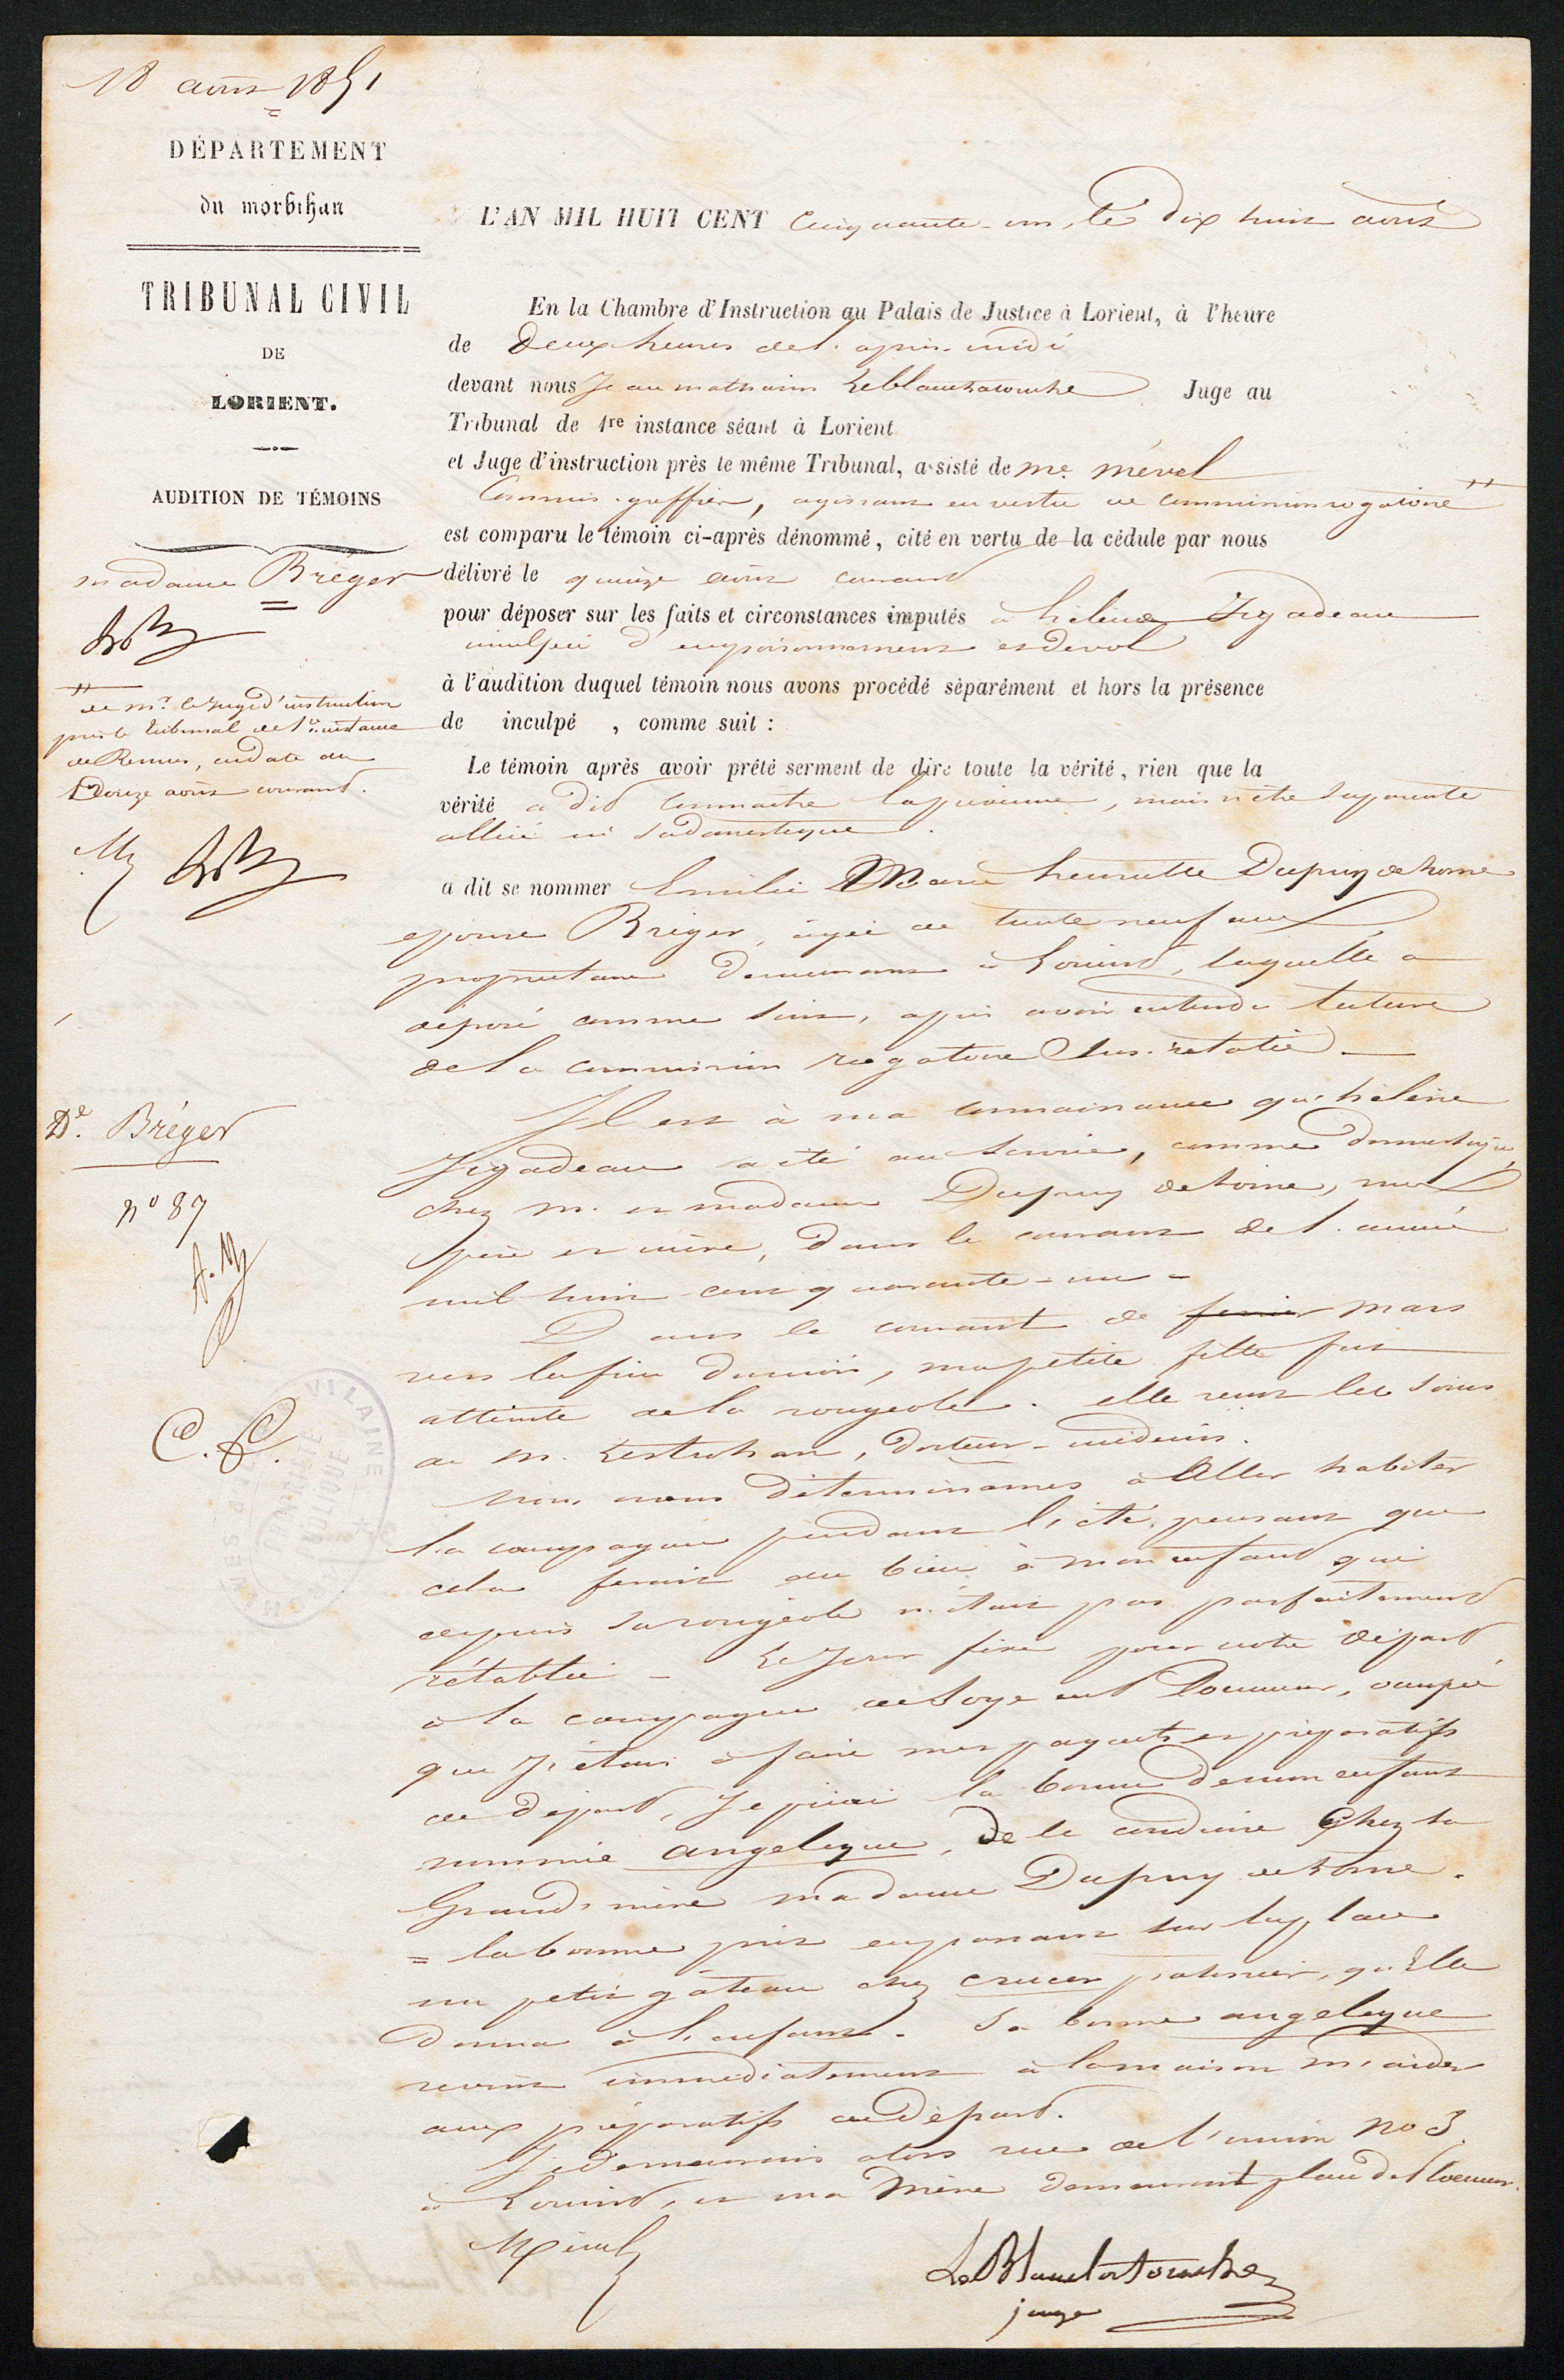 18 août 1851
DÉPARTEMENT
du morbihan
TRIBUNAL CIVIL
DE
LORIENT.
AUDITION DE TÉMOINS
madame Bréger
de mr. le Juge d'instruction
près le tribunal de 1re instance
de Rennes, en date du
Douze août courant.
De. Bréger
no 87
L'AN MIL HUIT CENT Cinquante-un, le dix huit août
En la Chambre d'Instruction au Palais de Justice à Lorient, à l'heure
de Deux heures de l'après-midi
devant nous Jean mathurin LeBlanchatouche Juge au
Tribunal de 1re instance séant à Lorient
et Juge d'instruction près le même Tribunal, assisté de me. mével
Commis-greffier, agissant en vertu de commission rogatoire
est comparu le témoin ci-après dénommé, cité en vertu de la cédule par nous
délivré le quinze août courant
pour déposer sur les faits et circonstances imputés à hélène Jégadeau
inculpée d'empoisonnement et de vol
à l'audition duquel témoin nous avons procédé séparément et hors la présence
de inculpé , comme suit :
Le témoin après avoir prêté serment de dire toute la vérité, rien que la
vérité a dit connaître la prévenue, mais n'être sa parente
alliée ni sa domestique.
a dit se nommer Emilie Marie henriette Dupuy de home
épouse Bréger, âgée de trente neuf ans
propriétaire demeurant à Lorient, laquelle a
déposé comme suit, après avoir entendu lecture
de la commission rogatoire sus-relatée
Il est à ma connaissance qu'hélène
Jégadeau a été au service, comme domestique,
chez m. et madame Dupuy de home, mes
père et mère, dans le courant de l'année
mil huit cent quarante-un -
Dans le courant de fevrier mars
vers la fin du mois, ma petite fille fut
atteinte de la rougeole. elle reçut les soins
de m. Lestrohan, docteur-médecin.
nous nous déterminames à Aller habiter
la campagne pendant l'été, pensant que
cela ferait du bien à mon enfant qui
depuis sa rougeole n'était pas parfaitement
rétablie - Le Jour fixé pour notre départ
à la campagne de Soye en Ploemeur, occupée
que j'étais à faire mes paquets et préparatifs
de départ, Je priai la bonne de mon enfant
nommée angelique, de le conduire Chez sa
Grand-mère madame Dupuy de home.
= la bonne prit en passant sur la place
un petit gâteau chez crucer patissier, qu'Elle
donna à l'enfant. Sa bonne angelique
revint immédiatement à la maison m'aider
aux préparatifs de départ.
Je demeurais alors rue de l'union no 3.
à Lorient, et ma mère demeurait place de Ploemeur.
Mével
LeBlanchatouche
juge